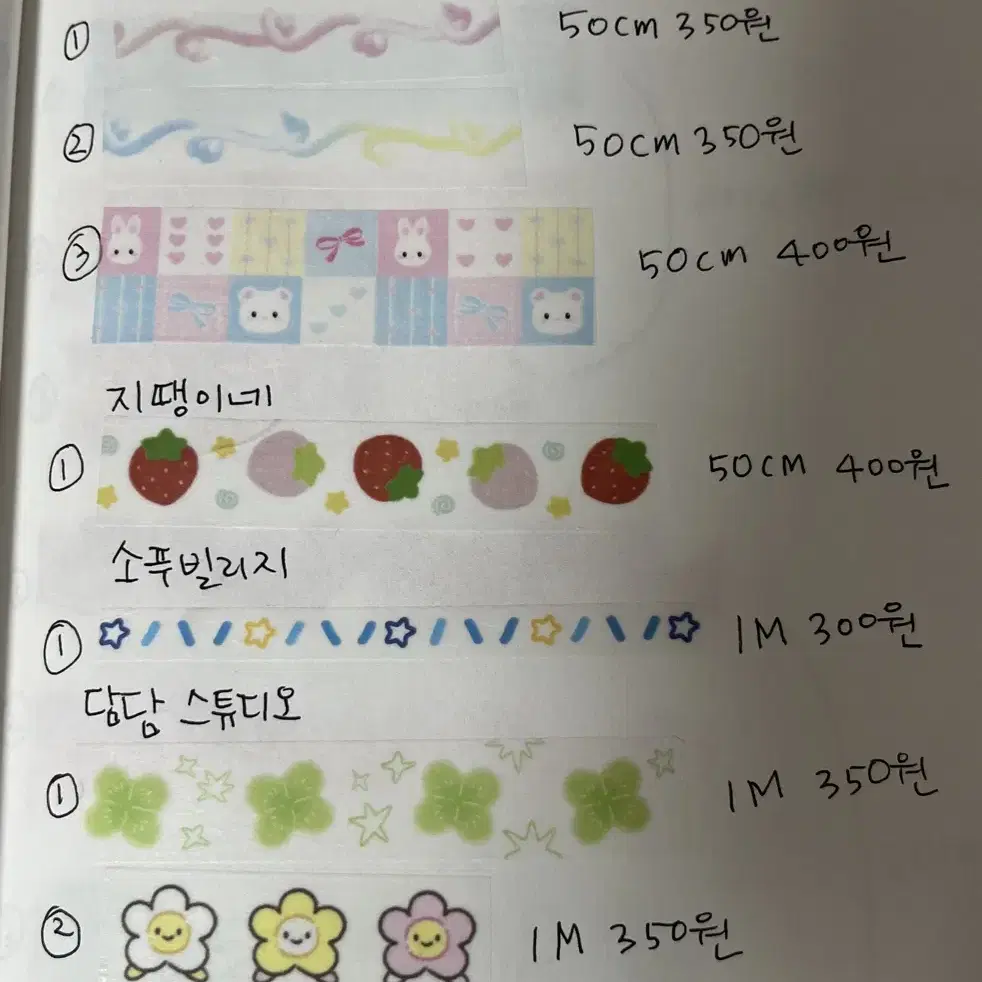 ① 50cm 350원
② 50cm 350원
③ 50cm 400원
지땡이네
① 50CM 400원
소푸빌리지
① 1M 300원
담담 스튜디오
① 1M 350원
② 1M 350원